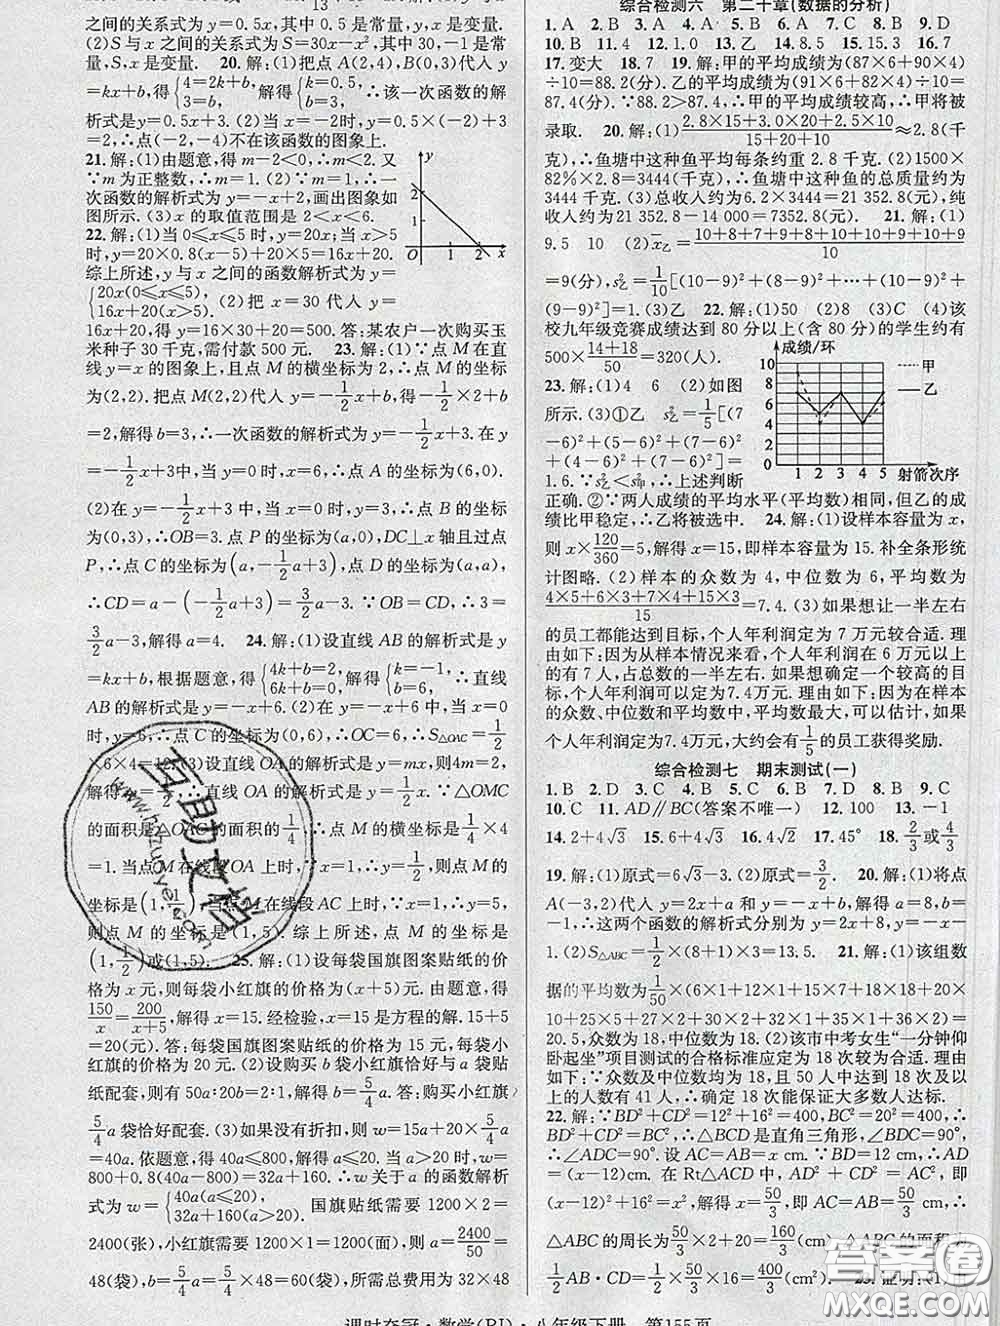 之间的关系式为y=0.5x,其中0.5是常量,y,x是变量.
(2)S与x之间的关系式为S=30x-x²,其中30,-1是常
量,S,x是变量. 20.解:(1)把点A(2,4),B(0,3)代入y=
kx+b,得{4=2k+b, 3=b, 解得{k=1/2, b=3, ∴该一次函数的解
析式为y=0.5x+3. (2)当x=-2时,y=0.5×(-2)+3
=2,∴点(-2,-4)不在该函数的图象上.
21.解:(1)由题意,得m-2<0,∴m<2. 又
∵m为正整数,∴m=1. (2)∵m=1,∴一
次函数的解析式为y=-x+2,画出图象如
图所示. (3)x的取值范围是2<x<6.
22.解:(1)当0≤x≤5时,y=20x;当x>5
时,y=20×0.8(x-5)+20×5=16x+20.
综上所述,y与x之间的函数解析式为y=
{20x(0≤x≤5), 16x+20(x>5). (2)把x=30代入y=
16x+20,得y=16×30+20=500. 答:某农户一次购买玉
米种子30千克,需付款500元. 23.解:(1)∵点M在直
线y=x的图象上,且点M的横坐标为2,∴点M的坐标为
(2,2). 把点M(2,2)代入y=-1/2x+b,得-1/2×2+b
=2,解得b=3,∴一次函数的解析式为y=-1/2x+3. 在y=
-1/2x+3中,当y=0时,x=6,∴点A的坐标为(6,0).
(2)在y=-1/2x+3中,当x=0时,y=3,∴点B的坐标
为(0,3),∴OB=3. ∵点P的坐标为(a,0),DC⊥x轴且过点
P,∴点C的坐标为(a,-1/2a+3),点D的坐标为(a,a),
∴CD=a-(-1/2a+3)=3/2a-3. ∵OB=CD,∴3=
3/2a-3,解得a=4. 24.解:(1)设直线AB的解析式是y=
kx+b,根据题意,得{4k+b=2, 6k+b=0, 解得{k=-1, b=6, ∴直线
AB的解析式是y=-x+6. (2)在y=-x+6中,当x=0时,
y=6,∴点C的坐标为(0,6),∴OC=6,∴S△OAC=1/2
×6×4=12. (3)设直线OA的解析式是y=mx,则4m=2,
解得m=1/2,∴直线OA的解析式是y=1/2x. ∵△OMC
的面积是△OAC的面积的1/4,∴点M的横坐标是1/4×4
=1. 当点M在线段OA上时,∵x=1,∴y=1/2,则点M的
坐标是(1,1/2);当点M在线段AC上时,∵x=1,∴y=5,
则点M的坐标是(1,5). 综上所述,点M的坐标是
(1,1/2)或(1,5). 25.解:(1)设每袋国旗图案贴纸的价格
为x元,则每袋小红旗的价格为(x+5)元. 由题意,得
150/x=200/(x+5),解得x=15. 经检验,x=15是方程的解. 15+5
=20(元). 答:每袋国旗图案贴纸的价格为15元,每袋小
红旗的价格为20元. (2)设购买b袋小红旗恰好与a袋贴
纸配套,则有50a∶20b=2∶1,解得b=5/4a. 答:购买小红旗
5/4a袋恰好配套. (3)如果没有折扣,则w=15a+20×5/4a=
40a. 依题意,得40a≤800,解得a≤20. 当a>20时,w=
800+0.8(40a-800)=32a+160. ∴w关于a的函数解析
式为w={40a(a≤20), 32a+160(a>20). 国旗贴纸需要1200×2=
2400(张),小红旗需要1200×1=1200(面),则a=2400/50=
48(袋),b=5/4a=5/4×48=60(袋),所需总费用为32×48
综合检测六 第二十章(数据的分析)
1.A 2.A 3.A 4.A 5.D 6.C 7.B 8.B 9.D
10.B 11.4 12.乙 13.5 14.8.5 15.15.3 16.7
17.变大 18.7 19.解:甲的平均成绩为(87×6+90×4)
÷10=88.2(分). 乙的平均成绩为(91×6+82×4)÷10=
87.4(分). ∵88.2>87.4,∴甲的平均成绩较高,∴甲将被
录取. 20.解:(1)(2.8×15+3.0×20+2.5×10)/(15+20+10)≈2.8(千
克),∴鱼塘中这种鱼平均每条约重2.8千克. (2)1500×
82%×2.8=3444(千克),∴鱼塘中这种鱼的总质量约为
3444千克. (3)总收入约为6.2×3444=21 352.8(元),纯
收入约为21 352.8-14 000=7352.8(元). 21.解:(1)
9.5 10 (2)x̄乙=(10+8+7+9+8+10+10+9+10+9)/10
=9(分),s²乙=1/10[(10-9)²+(8-9)²+(7-9)²+…+
(9-9)²]=1. (3)乙 22.解:(1)50 (2)8 (3)C (4)该
校九年级竞赛成绩达到80分以上(含80分)的学生约有
500×(14+18)/50=320(人).
成绩/环
10
8
6
4
2
0
1 2 3 4 5 射箭次序
甲
乙
23.解:(1)4 6 (2)如图
所示. (3)①乙 s²乙=1/5[(7
-6)²+(5-6)²+(7-6)²+
(4-6)²+(7-6)²]=
1.6. ∵s²乙<s²甲,∴上述判断
正确. ②∵两人成绩的平均水平(平均数)相同,但乙的成
绩比甲稳定,∴乙将被选中. 24.解:(1)设样本容量为x,
则x×120/360=5,解得x=15,即样本容量为15. 补全条形统
计图略. (2)样本的众数为4,中位数为6,平均数为
(4×5+6×3+7×4+15×3)/15=7.4. (3)如果想让一半左右
的员工都能达到目标,个人年利润定为7万元较合适. 理
由如下:因为从样本情况来看,个人年利润在6万元以上
的有7人,占总数的一半左右. 如果想确定一个较高的目
标,个人年利润可以定为7.4万元. 理由如下:因为在样本
的众数、中位数和平均数中,平均数最大,可以估计,如果
个人年利润定为7.4万元,大约会有1/5的员工获得奖励.
综合检测七 期末测试(一)
1.B 2.D 3.C 4.D 5.A 6.B 7.D 8.B 9.C
10.C 11.AD∥BC(答案不唯一) 12.100 13.-1
14.2+4√3 15.6+4√3 16.2 17.45° 18.2/3或4/3
19.解:(1)原式=6√3-3. (2)原式=3/2. 20.解:(1)将点
A(-3,2)代入y=2x+a和y=-x+b,得a=8,b=
-1,∴这两个函数的解析式分别为y=2x+8,y=-x-
1. (2)S△ABC=1/2×(8+1)×3=13.5. 21.解:(1)该组数
据的平均数为1/50×(6×1+12×1+15×7+18×18+20×
10+25×5+27×2+30×2+32×1+35×1+36×2)=
20.5,众数为18,中位数为18. (2)该市中考女生“一分钟仰
卧起坐”项目测试的合格标准应定为18次较为合适. 理由
如下:∵众数及中位数均为18,且50人中达到18次及以
上的人数有41人,∴确定18次能保证大多数人达标.
22.解:∵BD²+CD²=12²+16²=400,BC²=20²=400,∴
BD²+CD²=BC²,∴△BCD是直角三角形,∠BDC=90°,
∴∠ADC=90°. 设AB=AC=x cm,在△ABC中,∴AD
=(x-12)cm. 在Rt△ACD中,AD²+CD²=AC²,即
(x-12)²+16²=x²,解得x=50/3,即AC=AB=50/3 cm,∴
△ABC的周长为50/3×2+20=160/3(cm),△ABC的面积为
1/2AB·CD=1/2×50/3×16=400/3(cm²). 23.证明:(1)
课时夺冠·数学(RJ)·八年级下册 第155页
互助文档
www.hzuoye.com
答案圈
MXQE.COM